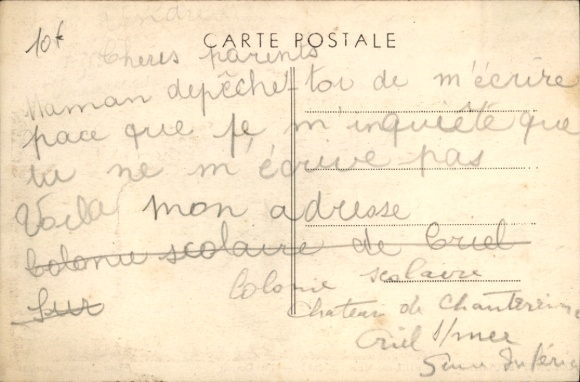 10f
CARTE POSTALE
Cheres parents
Maman depêche-toi de m'écrire
pace que je m'inquiète que
tu ne m'écrive pas
Voila mon adresse
Colonie scolaire de Criel
Sur
Colonie scolaire
Chateau de Chantereine
Criel s/mer
Seine Inférie